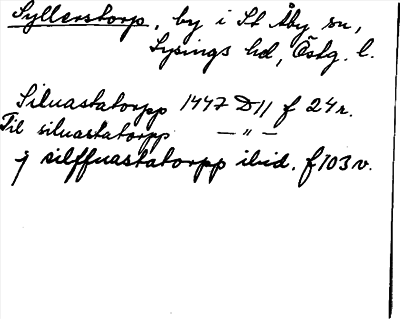 Syllerstorp, by i St Åby sn,
Lysings hd, Östg. l.
Siluastatorpp 1447 D11 f 24r.
Til siluastatorpp — " —
j silffuastatorpp ibid. f 103v.